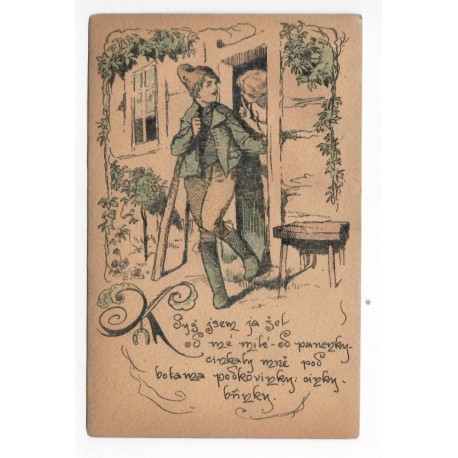 Když jsem ja šel
od mé milé - od panenky -
cinkaly mně pod
botama podkovinky: cinky -
břinky.